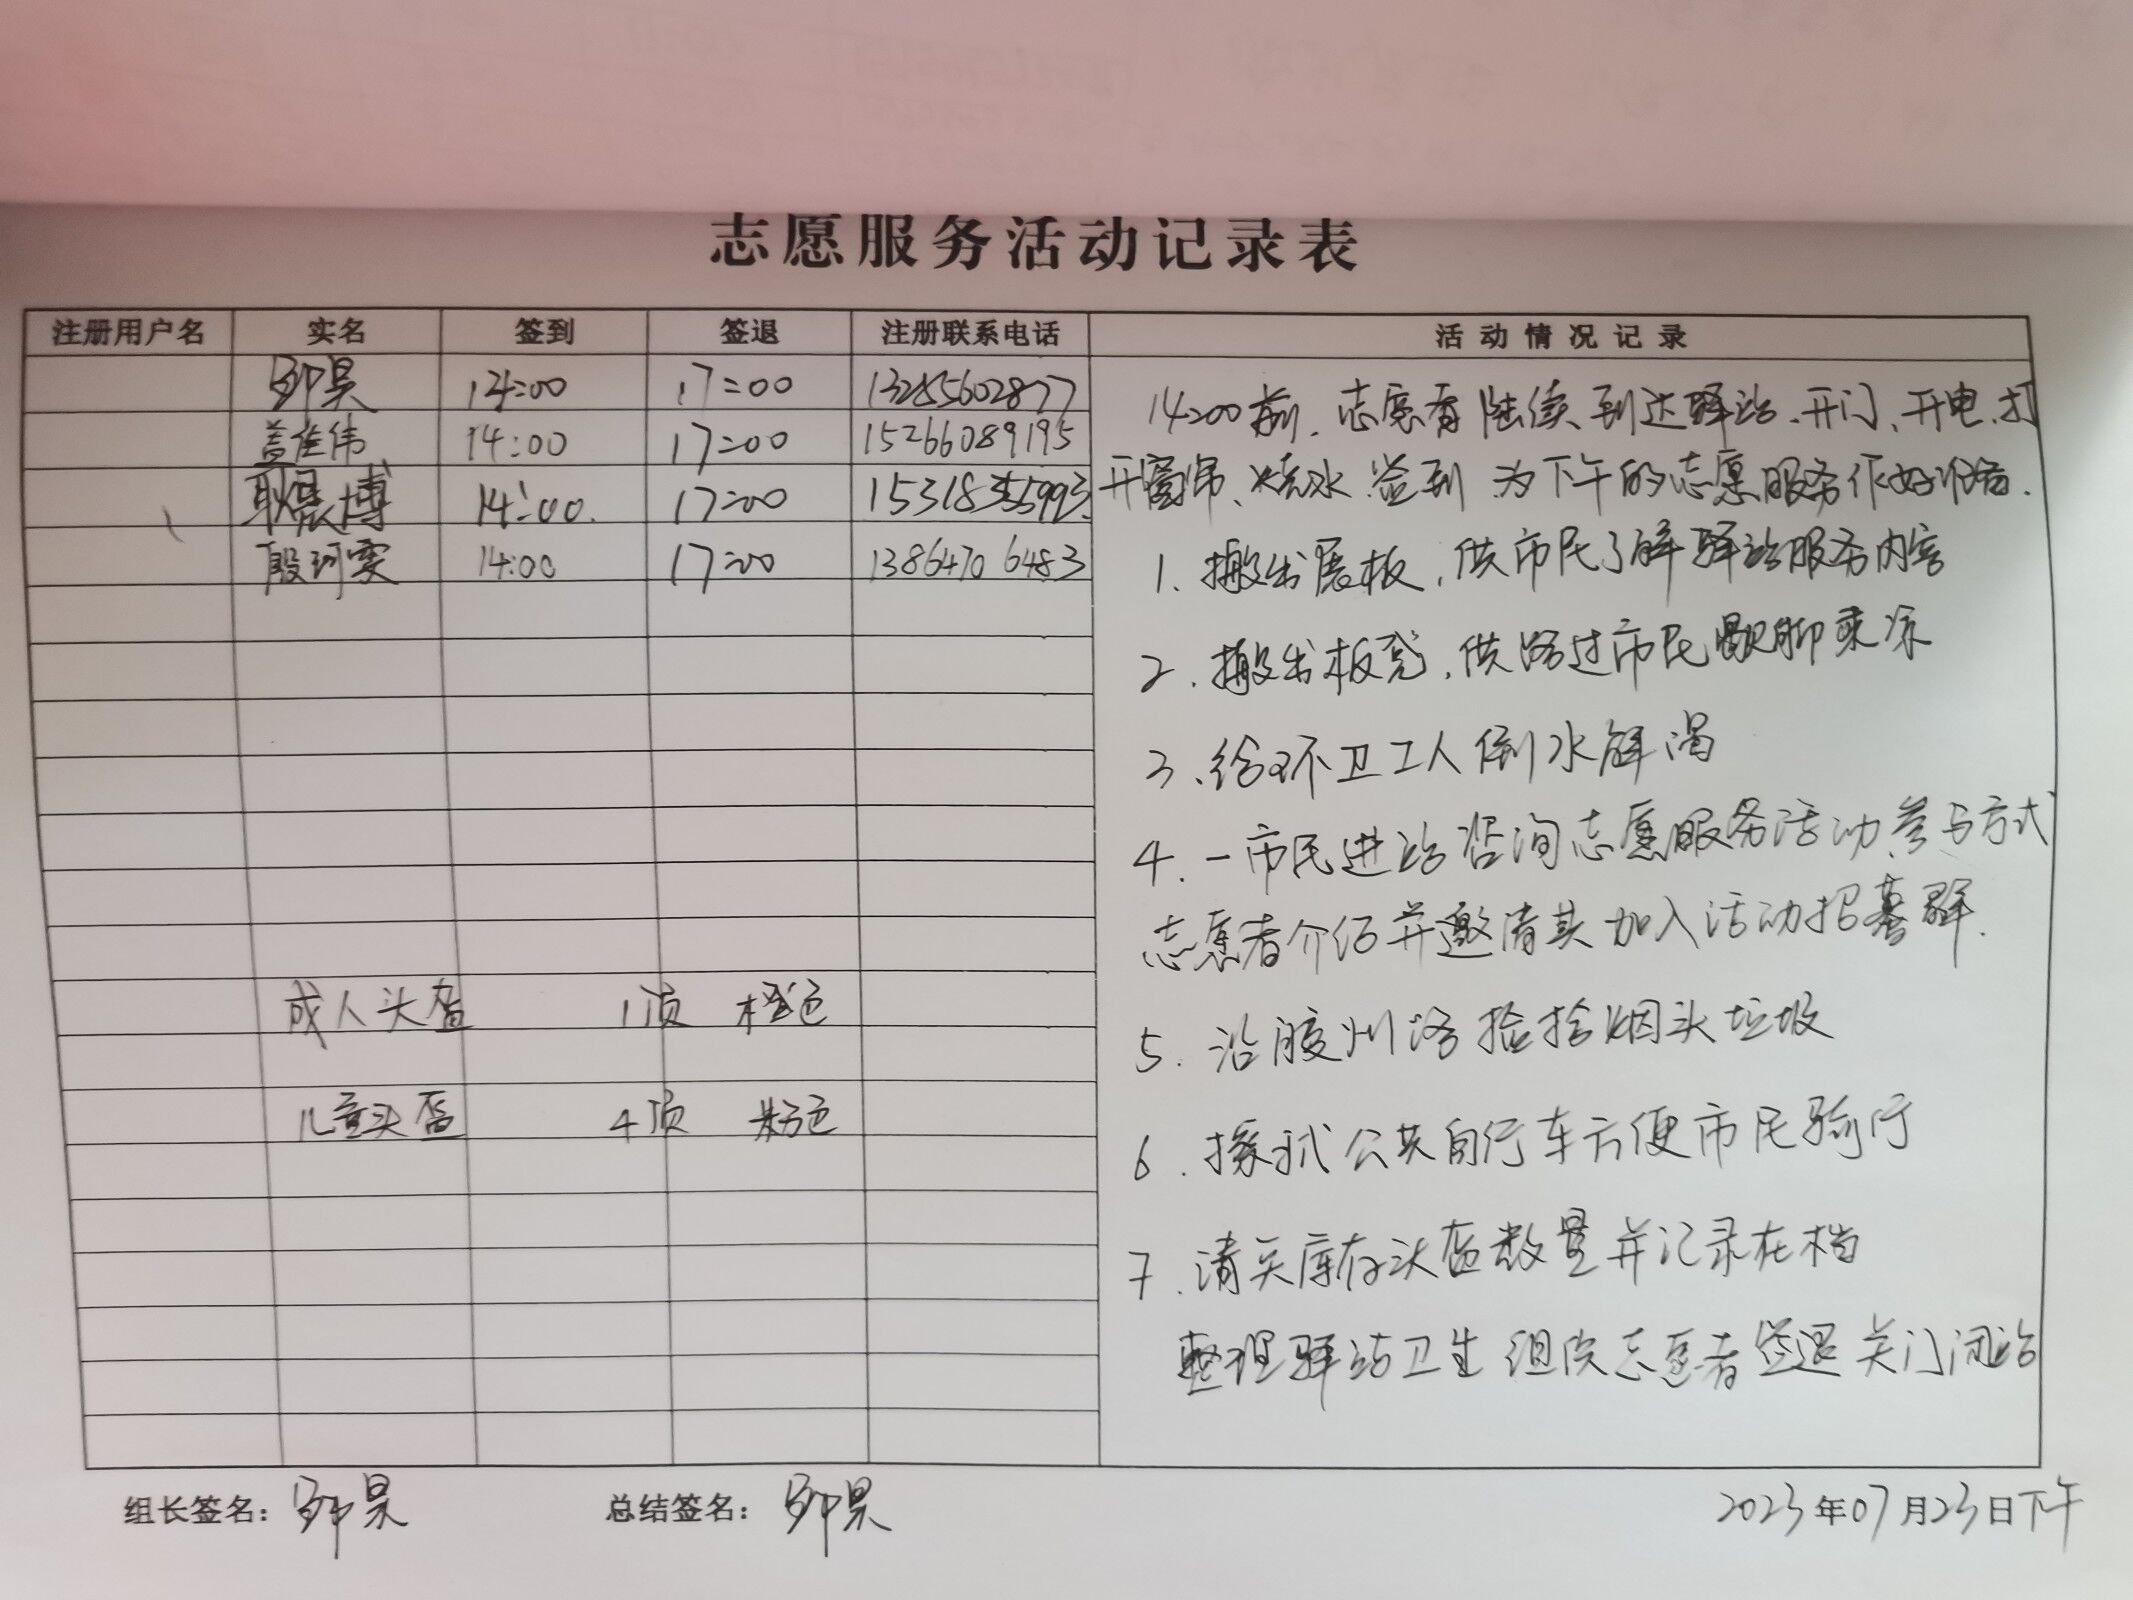 志愿服务活动记录表
注册用户名 实名 签到 签退 注册联系电话 活动情况记录
昊 14:00 17:00 13285602877
盖佳伟 14:00 17:00 15266089195
耿晨博 14:00. 17:00 15318355993
殷珂雯 14:00 17:00 13864706483
14:00前、志愿者陆续到达驿站、开门、开电、打
开窗帘、烧水 签到 为下午的志愿服务作好准备.
1. 搬出展板，供市民了解驿站服务内容
2. 搬出板凳，供路过市民歇脚乘凉
3、给环卫工人倒水解渴
4. 一市民进站咨询志愿服务活动参与方式
志愿者介绍并邀请其加入活动招募群.
5. 沿胶州路捡拾烟头垃圾
6. 擦拭公共自行车方便市民骑行
7. 清点库存头盔数量并记录在档
整理驿站卫生 组织志愿者签退 关门闭站
成人头盔 1顶 橙色
儿童头盔 4顶 粉色
组长签名： 昊 总结签名： 昊 2023年07月23日下午